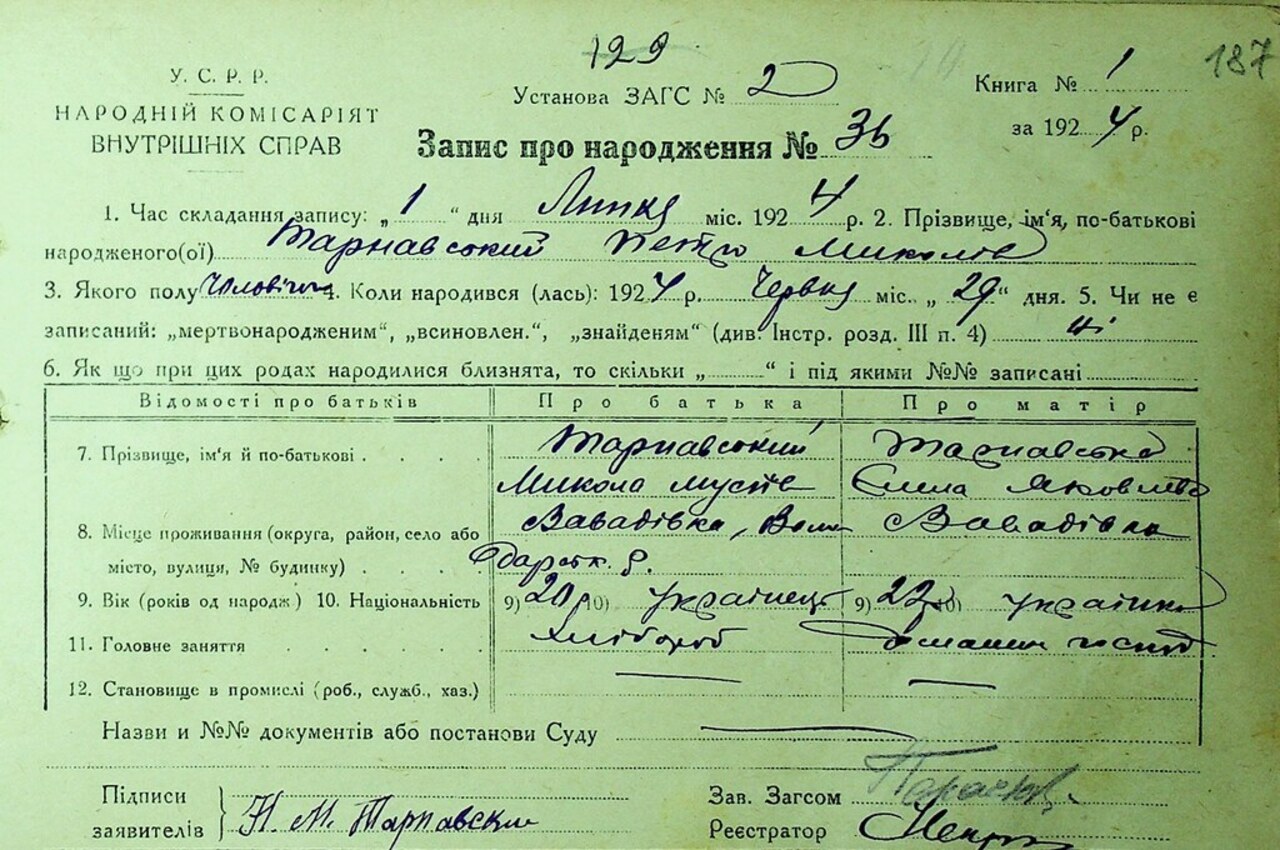 129
187
У. С. Р. Р.
НАРОДНІЙ КОМІСАРІЯТ
ВНУТРІШНІХ СПРАВ
Установа ЗАГС № 2
Книга № 1
за 1924 р.
Запис про народження № 36
1. Час складання запису: „1“ дня Липця міс. 1924 р. 2. Прізвище, ім'я, по-батькові
народженого(ої) Тарнавський Петро Миколів
3. Якого полу Чоловічого 4. Коли народився (лась): 1924 р. Червця міс. „29“ дня. 5. Чи не є
записаний: „мертвонародженим“, „всиновлен.“, „знайденям“ (див. Інстр. розд. III п. 4) ні
6. Як що при цих родах народилися близнята, то скільки „ “ і під якими №№ записані
Відомості про батьків Про батька Про матір
7. Прізвище, ім'я й по-батькові . . . . Тарнавський Тарнавська
Микола Єлена Яковлева
8. Місце проживання (округа, район, село або Завадівка, Завадівка
місто, вулиця, № будинку) . . . .
9. Вік (років од народж) 10. Національність 9) 20 10) українець 9) 22 10) українка
11. Головне заняття . . . . . . Хлібороб домашн. господ.
12. Становище в промислі (роб., служб., хаз.)
Назви и №№ документів або постанови Суду
Підписи
заявителів Н. М. Тарнавский
Зав. Загсом
Реєстратор